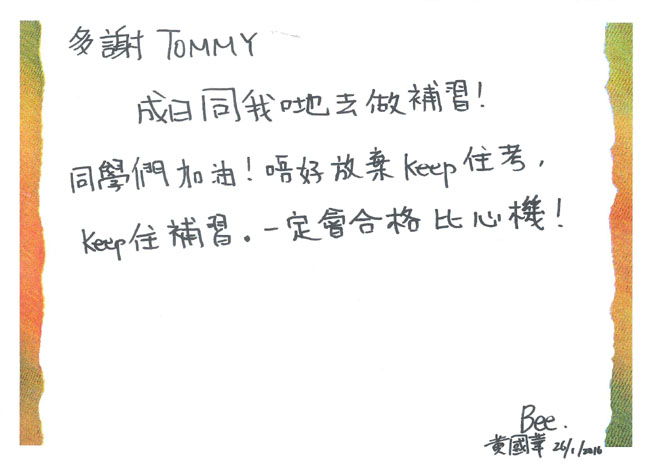 多謝 TOMMY
成日同我哋去做補習!
同學們加油!唔好放棄 keep住考,
keep住補習。一定會合格 比心機!
Bee.
黃國華 26/1/2016